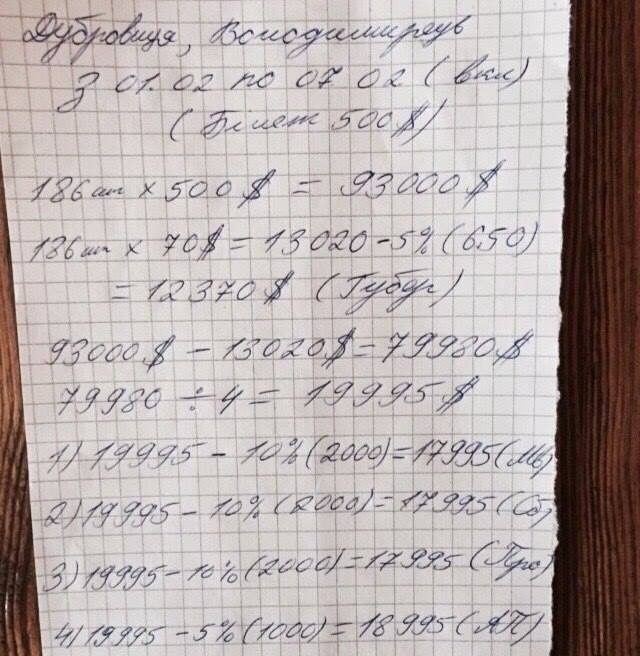 Дубровиця, Володимирець
З 01.02 по 07 02 (вкл)
(Білет 500$)
186 шт х 500$ = 93000$
186 шт х 70$ = 13020 - 5% (650)
= 12370$ (Губул)
93000$ - 13020$ = 79980$
79980 ÷ 4 = 19995$
1) 19995 - 10% (2000) = 17995 (Мв)
2) 19995 - 10% (2000) = 17995 (Сб)
3) 19995 - 10% (2000) = 17995 (Про)
4) 19995 - 5% (1000) = 18995 (АП)